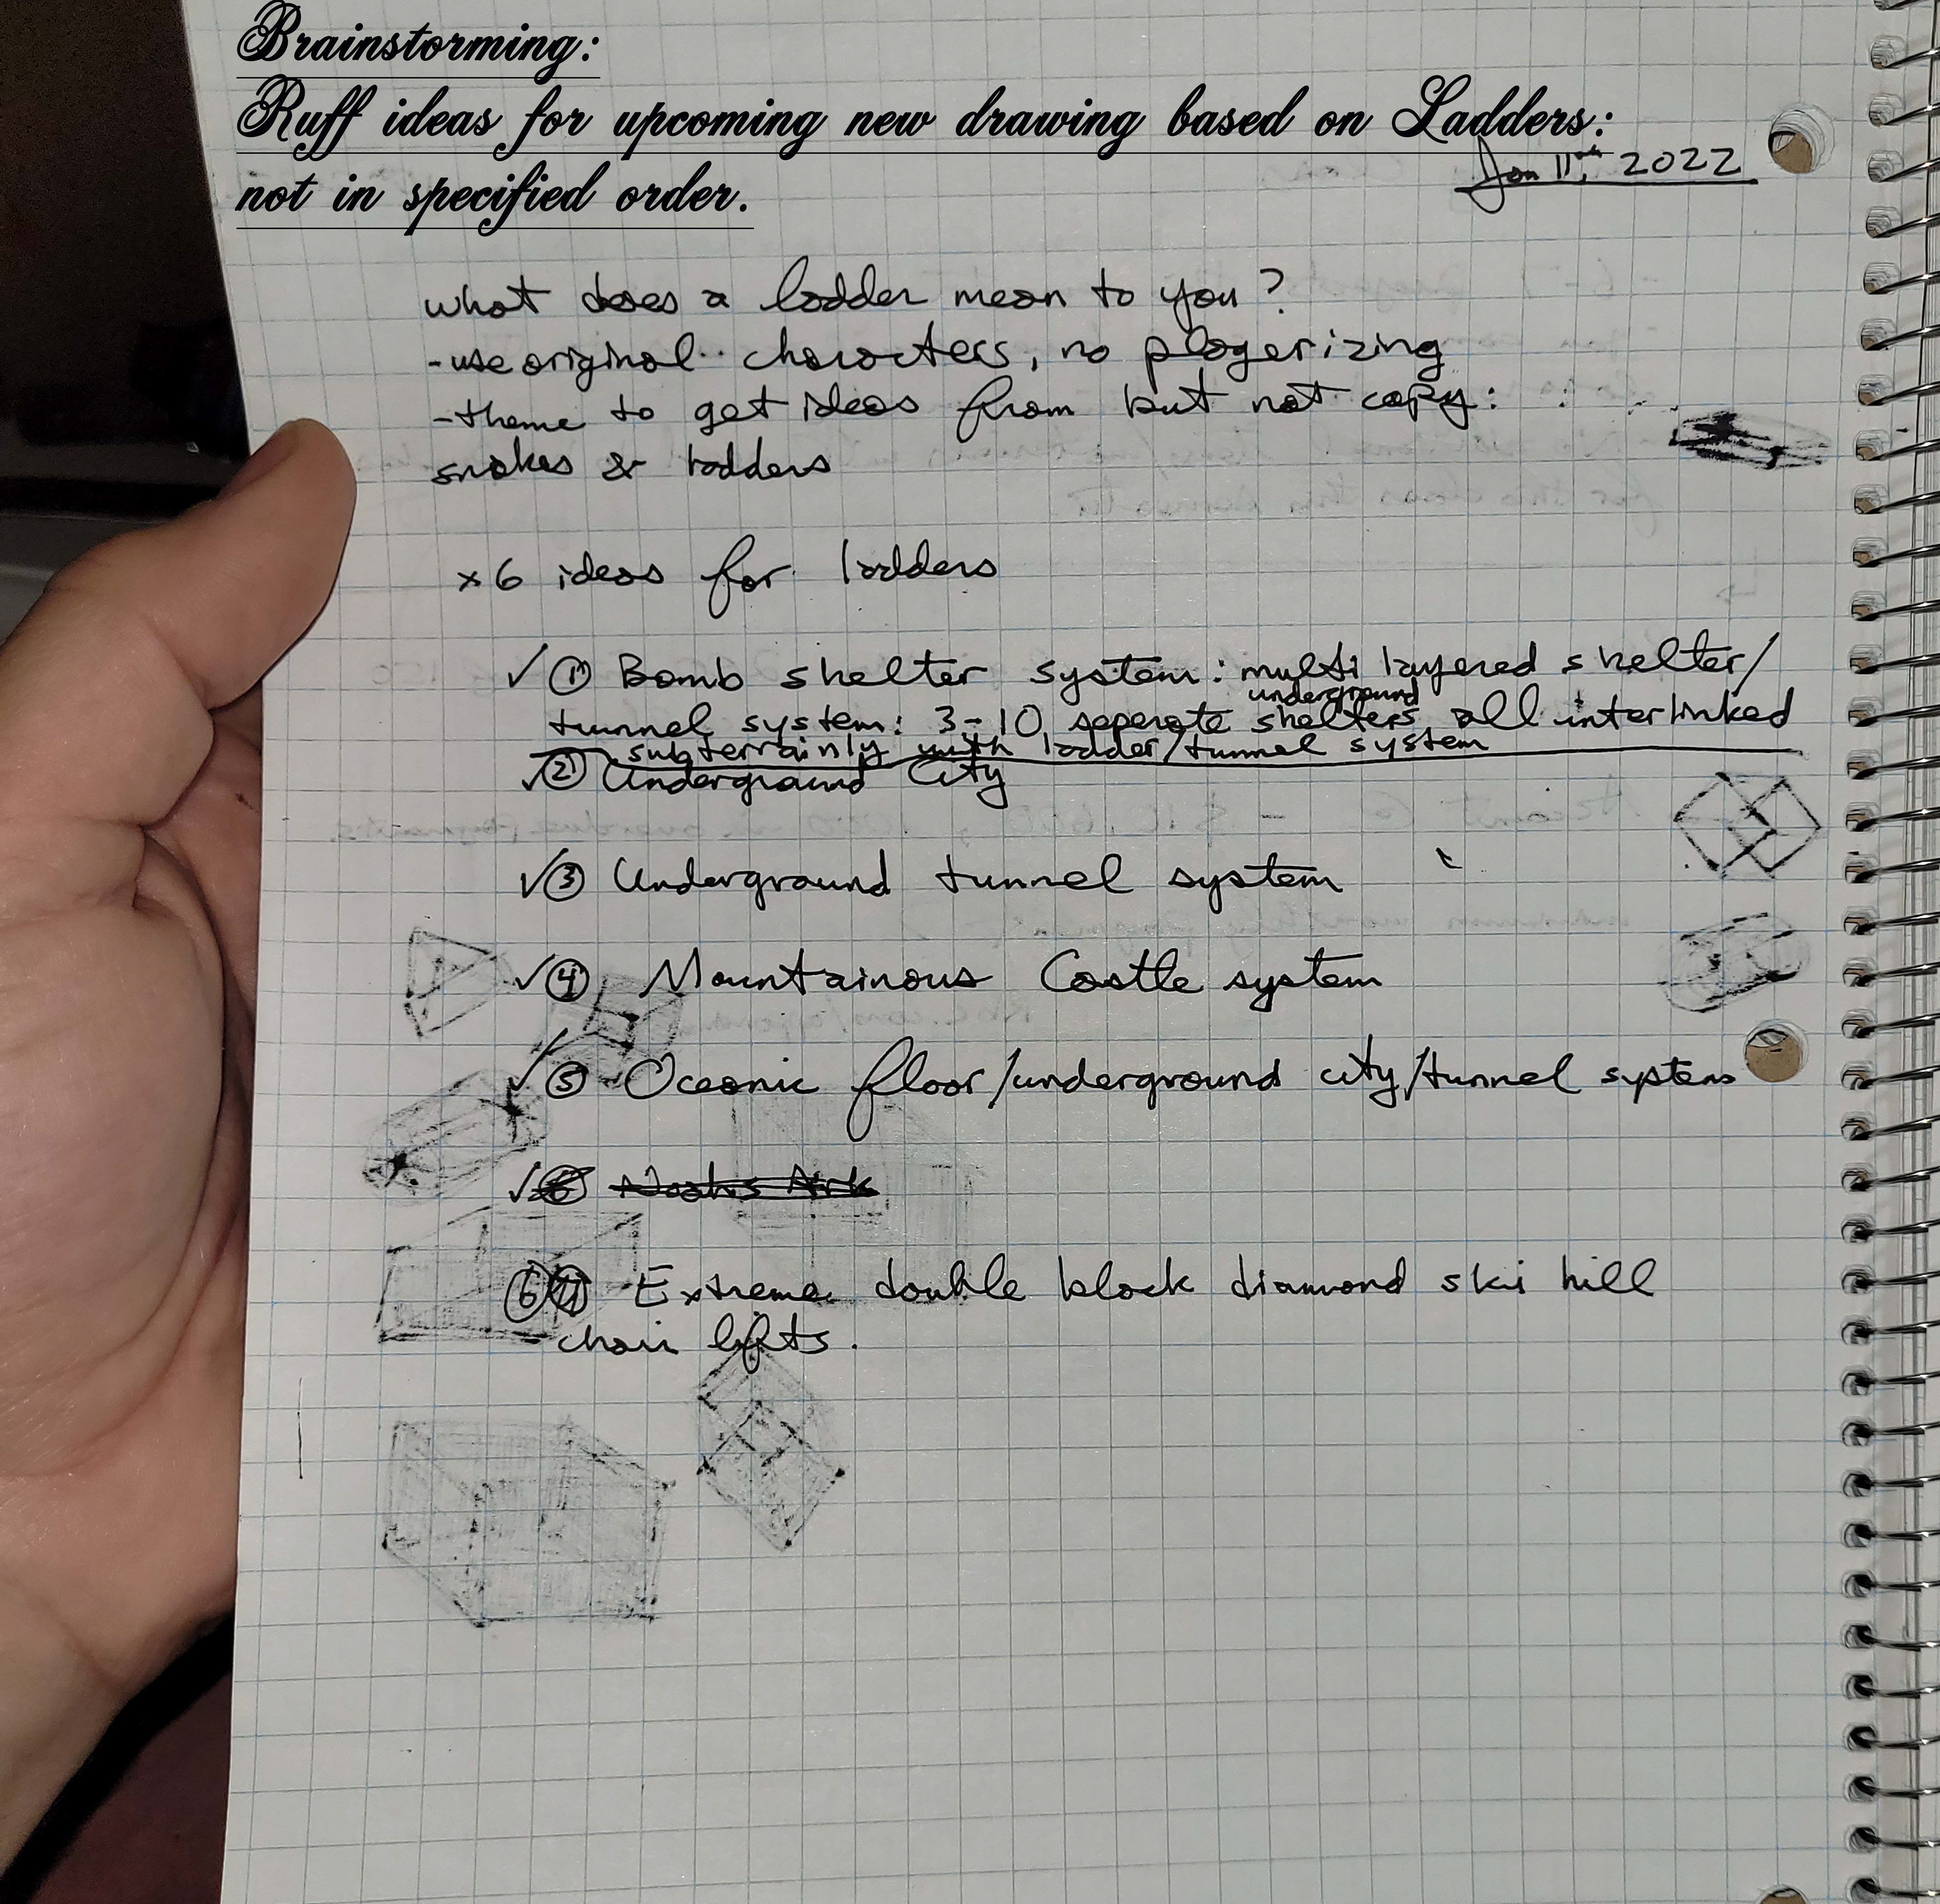 Brainstorming:
Ruff ideas for upcoming new drawing based on Ladders:
Jan 11th, 2022
not in specified order.
what does a ladder mean to you?
-use original characters, no plagerizing
-theme to get ideas from but not copy:
snakes & ladders
x6 ideas for ladders
✓ ① Bomb shelter system: multi layered shelter/
underground
tunnel system: 3-10 seperate shelters all interlinked
subterrainly with ladder/tunnel system
✓② Underground City
✓③ Underground tunnel system
✓④ Mountainous Castle system
✓⑤ Oceanic floor/underground city/tunnel system
✓⑥ Noahs Ark
⑥ Extreme double black diamond ski hill
-chair lifts.